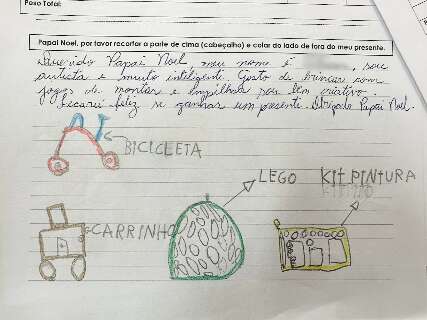 Peso Total:
Papai Noel, por favor recortar a parte de cima (cabeçalho) e colar do lado de fora do meu presente.
Querido Papai Noel, meu nome é , sou
autista e muito inteligente. Gosto de brincar com
jogos de montar e empilhar sou bem criativo.
Ficarei feliz se ganhar um presente. Obrigado Papai Noel.
BICICLETA
LEGO
KIT PINTURA
CARRINHO